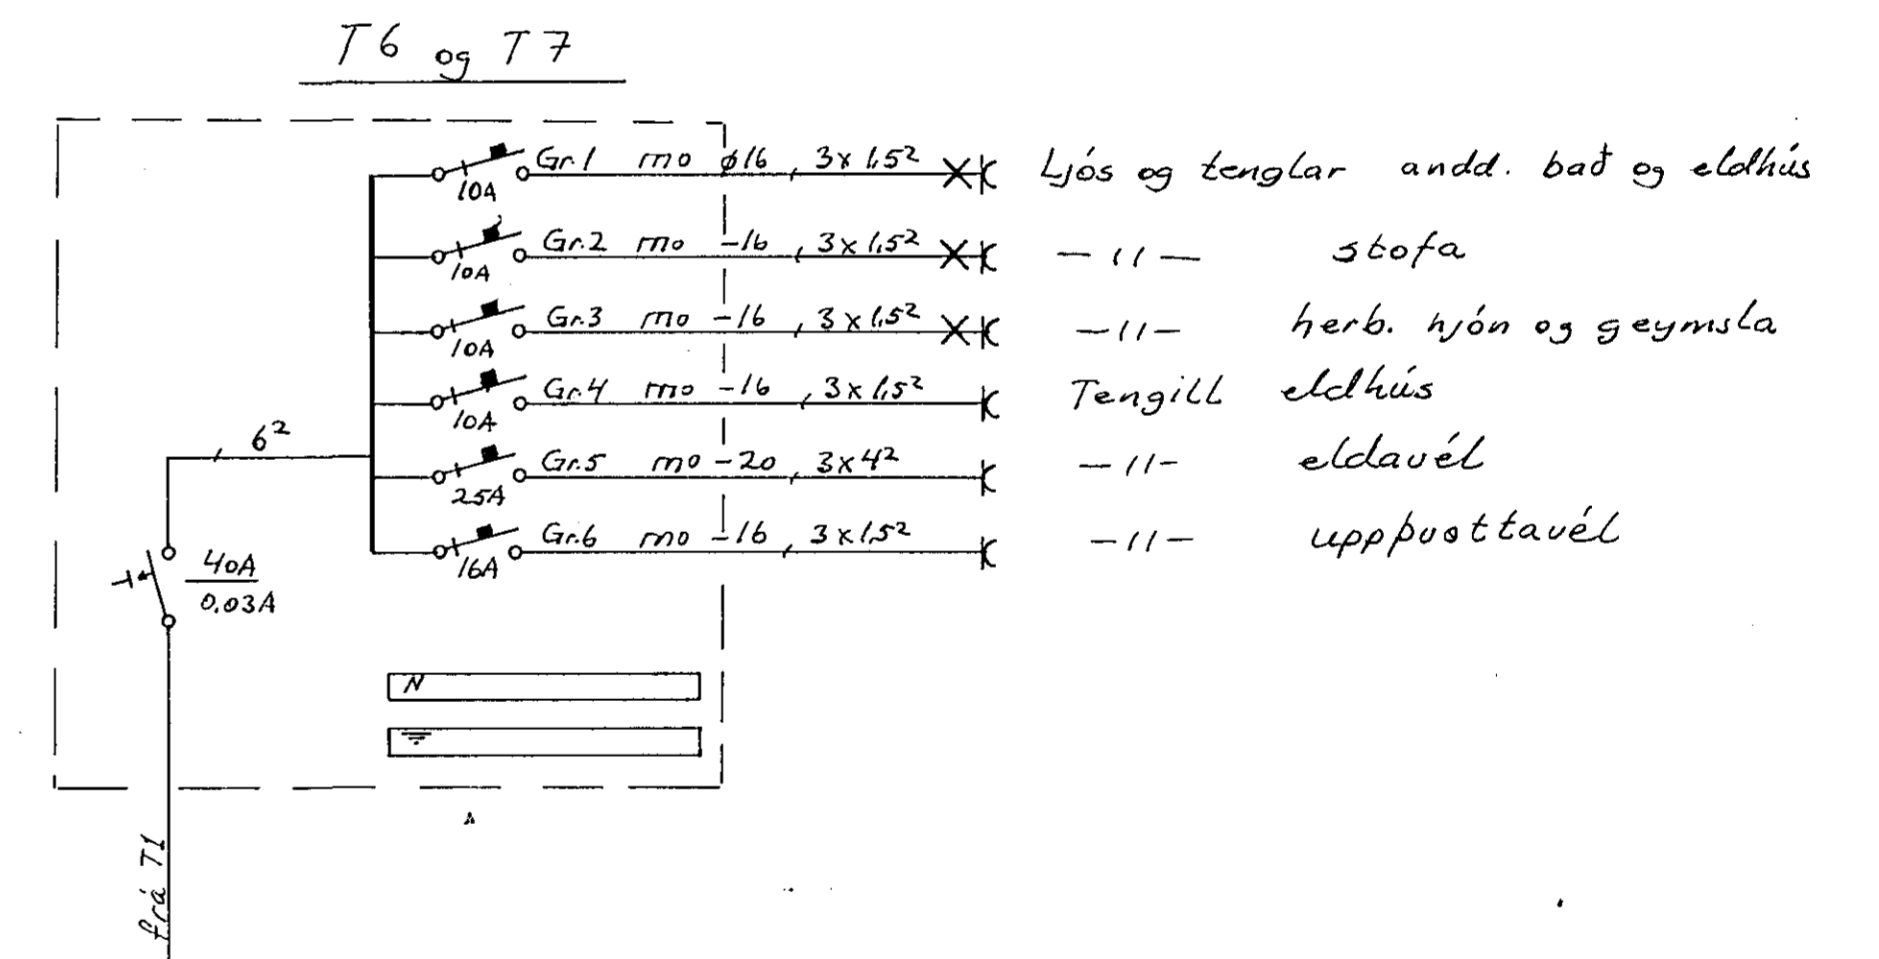 T6 og T7
Gr.1 mo ø16, 3x1,5² Ljós og tenglar andd. bað og eldhús
10A
Gr.2 mo -16, 3x1,5² -//- stofa
10A
Gr.3 mo -16, 3x1,5² -//- herb. hjón og geymsla
10A
Gr.4 mo -16, 3x1,5² Tengill eldhús
10A
6²
Gr.5 mo -20, 3x4² -//- eldavél
25A
Gr.6 mo -16, 3x1,5² -//- uppþvottavél
16A
40A
0.03A
N
frá T1